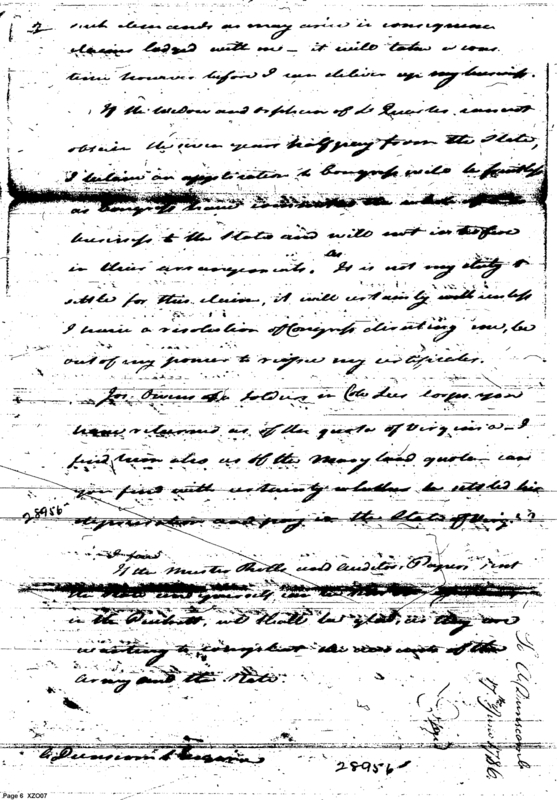 2 such demands as may arise in consequence
claims lodged with me – it will take a cons
time however before I can deliver up my business.
If the widow and orphan of Lt Quarles cannot
obtain the seven years half pay from the State,
I believe an application to Congress will be fruitless
as Congress have committed the whole of
business to the States and will not interfere
in their arrangements. As It is not my duty to
settle for this claim, it will certainly unless
I have a resolution of Congress directing me, be
out of my power to my certificates.
Jos. Owens a Soldier in Colo Lees Corps you
have returned as of the quota of Virginia – I
find him also as of the Maryland quota – can
you find with certainty whether he settled his
depreciation and pay in the State of Virga ?
28956
I find
If the Muster Rolls and Auditors Papers
the State and yourself can
in the we shall be glad, as they are
wanting to compleat the accounts of the
Army and the State
A. Dunscomb Esquire
28956
To A Dunscomb
17th June 1786
Copied
Page 6 XZO07